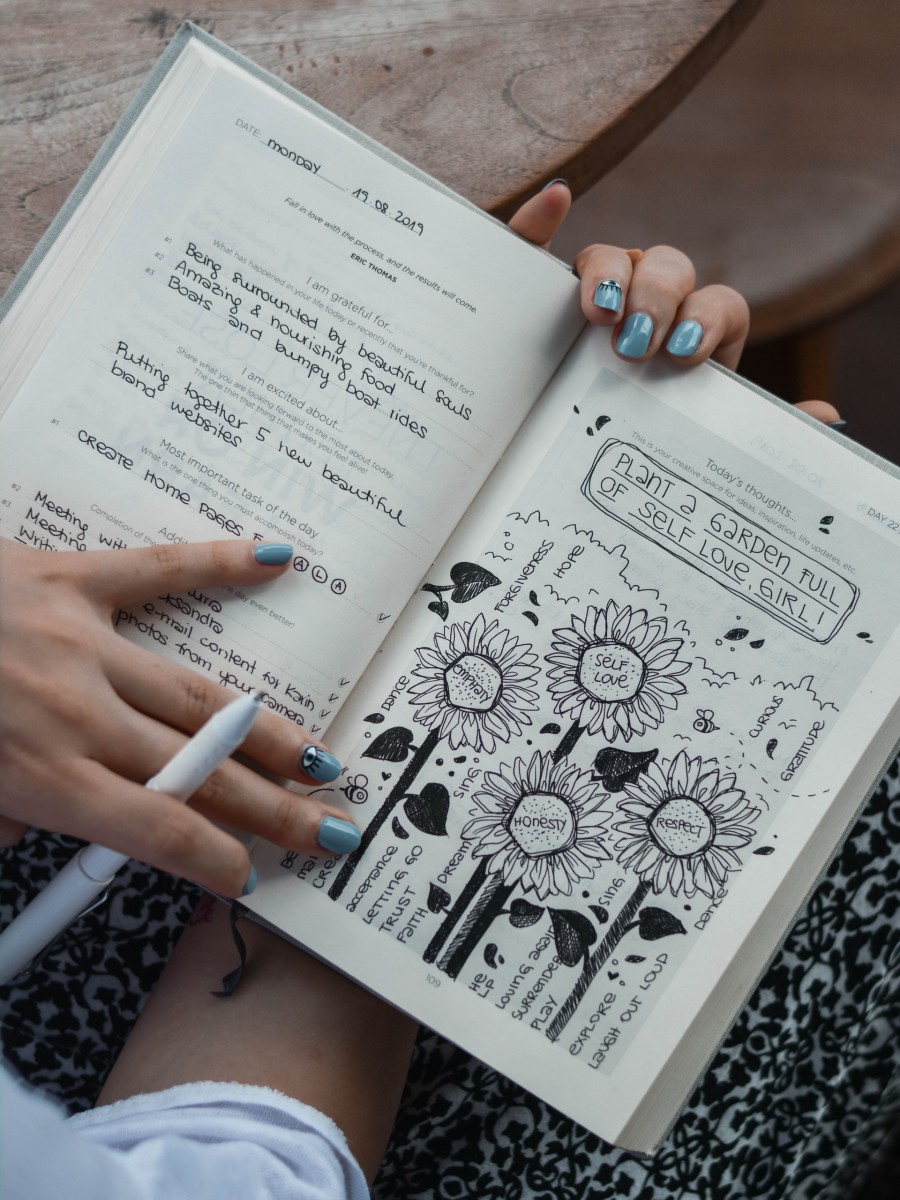 DATE: monday 19.08.2019
Fall in love with the process, and the results will come.
ERIC THOMAS
I am grateful for...
What has happened in your life today or recently that you're thankful for?
#1 Being surrounded by beautiful souls
#2 Amazing & nourishing food
#3 Boats and bumpy boat rides
I am excited about...
Share what you are looking forward to the most about today.
The one thin that thing that makes you feel alive!
Putting together 5 new beautiful
brand websites
Most important task of the day
What is the one thing you must accomplish today?
#1 create home pages
ALA
Completion of
day even better!
#2 Meeting with
#3 Meeting
e-mail content for Karin
photos from your camera
DAY 22
Today's thoughts...
This is your creative space for ideas, inspiration, life updates, etc.
PLANT A GARDEN FULL
OF SELF LOVE, GIRL!
FORGIVENESS
HOPE
EMPHATY
SELF
LOVE
DANCE
CURIOUS
GRATITUDE
SING
HONESTY
RESPECT
acceptance
LETTING GO
TRUST
FAITH
Dream
SING
Dance
HE
LP
LOVING AGAIN
SURRENDER
PLAY
EXPLORE
LAUGH OUT LOUD
109